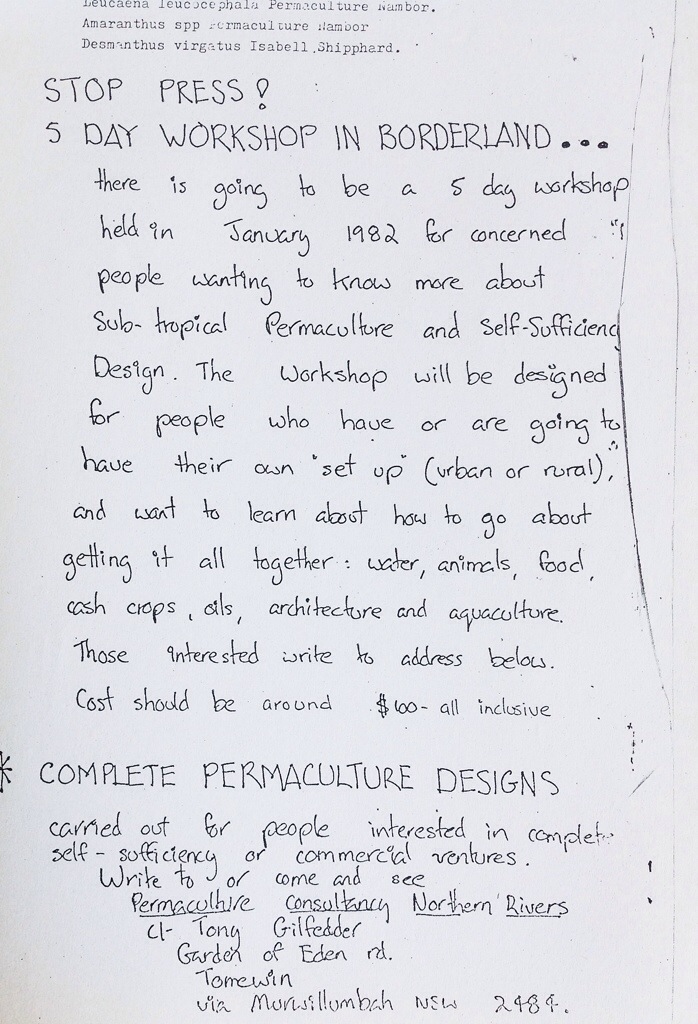 Leucaena leucocephala Permaculture Nambor.
Amaranthus spp Permaculture Nambor
Desmanthus virgatus Isabell Shipphard.
STOP PRESS!
5 DAY WORKSHOP IN BORDERLAND...
there is going to be a 5 day workshop
held in January 1982 for concerned
people wanting to know more about
Sub-tropical Permaculture and Self-Sufficiency
Design. The Workshop will be designed
for people who have or are going to
have their own "set up" (urban or rural),
and want to learn about how to go about
getting it all together: water, animals, food,
cash crops, oils, architecture and aquaculture.
Those interested write to address below.
Cost should be around - all inclusive
* COMPLETE PERMACULTURE DESIGNS
carried out for people interested in complete
self-sufficiency or commercial ventures.
Write to or come and see
Permaculture Consultancy Northern Rivers
c/- Tony Gilfedder
Garden of Eden rd.
Tomewin
via Murwillumbah NSW 2484.